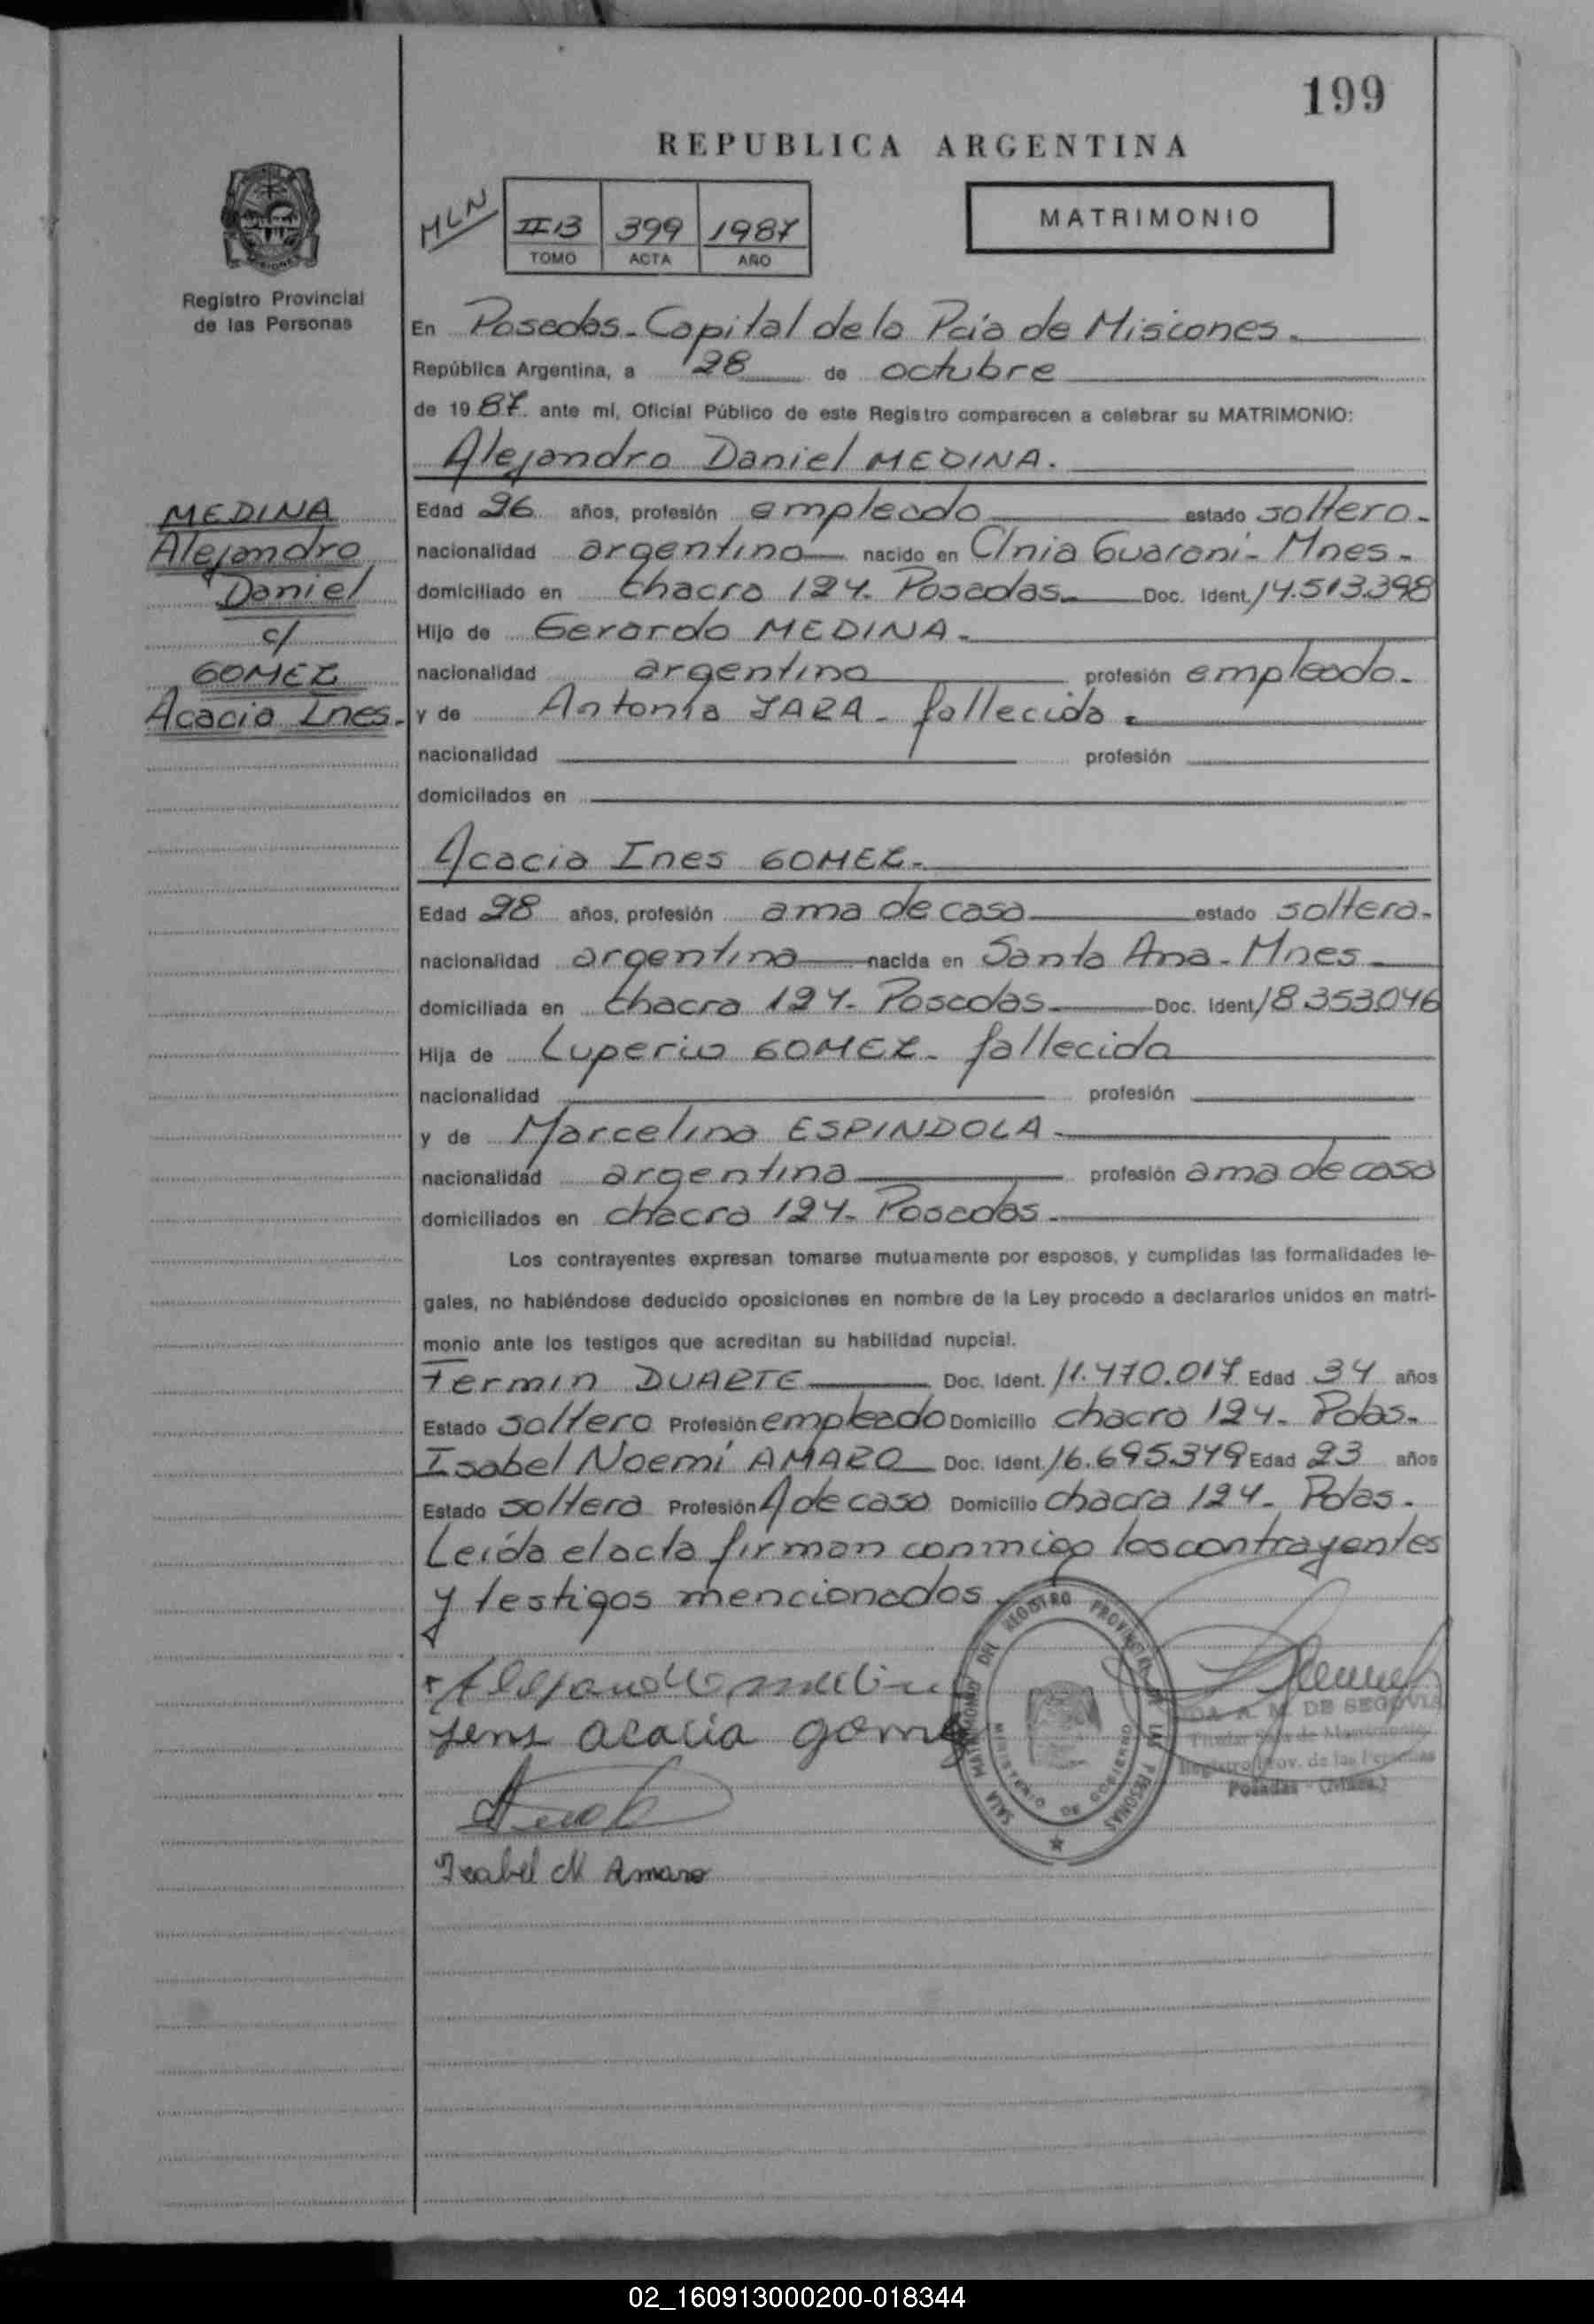 199
REPUBLICA ARGENTINA
MLN
II B 399 1987
TOMO ACTA AÑO
MATRIMONIO
Registro Provincial
de las Personas
En Posadas - Capital de la Pcia de Misiones.
República Argentina, a 28 de octubre
de 1987. ante mí, Oficial Público de este Registro comparecen a celebrar su MATRIMONIO:
Alejandro Daniel MEDINA.
MEDINA
Alejandro
Daniel
c/
GOMEZ
Acacia Ines.
Edad 26 años, profesión empleado estado soltero.
nacionalidad argentino nacido en Clnia Guaraní - Mnes.
domiciliado en chacra 124. Posadas. Doc. Ident. 14.513.398
Hijo de Gerardo MEDINA.
nacionalidad argentino profesión empleado.
y de Antonia JARA - fallecida.
nacionalidad profesión
domicilados en
Acacia Ines GOMEZ.
Edad 28 años, profesión ama de casa estado soltera.
nacionalidad argentina nacida en Santa Ana - Mnes.
domiciliada en chacra 124. Posadas. Doc. Ident. 18.353.046
Hija de Luperio GOMEZ - fallecido
nacionalidad profesión
y de Marcelina ESPINDOLA.
nacionalidad argentina profesión ama de casa
domiciliados en chacra 124. Posadas.
Los contrayentes expresan tomarse mutuamente por esposos, y cumplidas las formalidades le-
gales, no habiéndose deducido oposiciones en nombre de la Ley procedo a declararlos unidos en matri-
monio ante los testigos que acreditan su habilidad nupcial.
Fermin DUARTE Doc. Ident. 11.470.017 Edad 34 años
Estado soltero Profesión empleado Domicilio chacra 124. Pdas.
Isabel Noemí AMARO Doc. Ident. 16.695.379 Edad 23 años
Estado soltera Profesión A de casa Domicilio chacra 124. Pdas.
Leída el acta firman conmigo los contrayentes
y testigos mencionados.
Alejandro medina
acacia gomez
Isabel N Amaro
SALA MATRIMONIO DEL REGISTRO PROVINCIAL DE LAS PERSONAS
MINISTERIO DE GOBIERNO
A. M. DE SEGOVIA
Titular Sala de Matrimonios
Registro Prov. de las Personas
Posadas - (Mnes.)
02_160913000200-018344